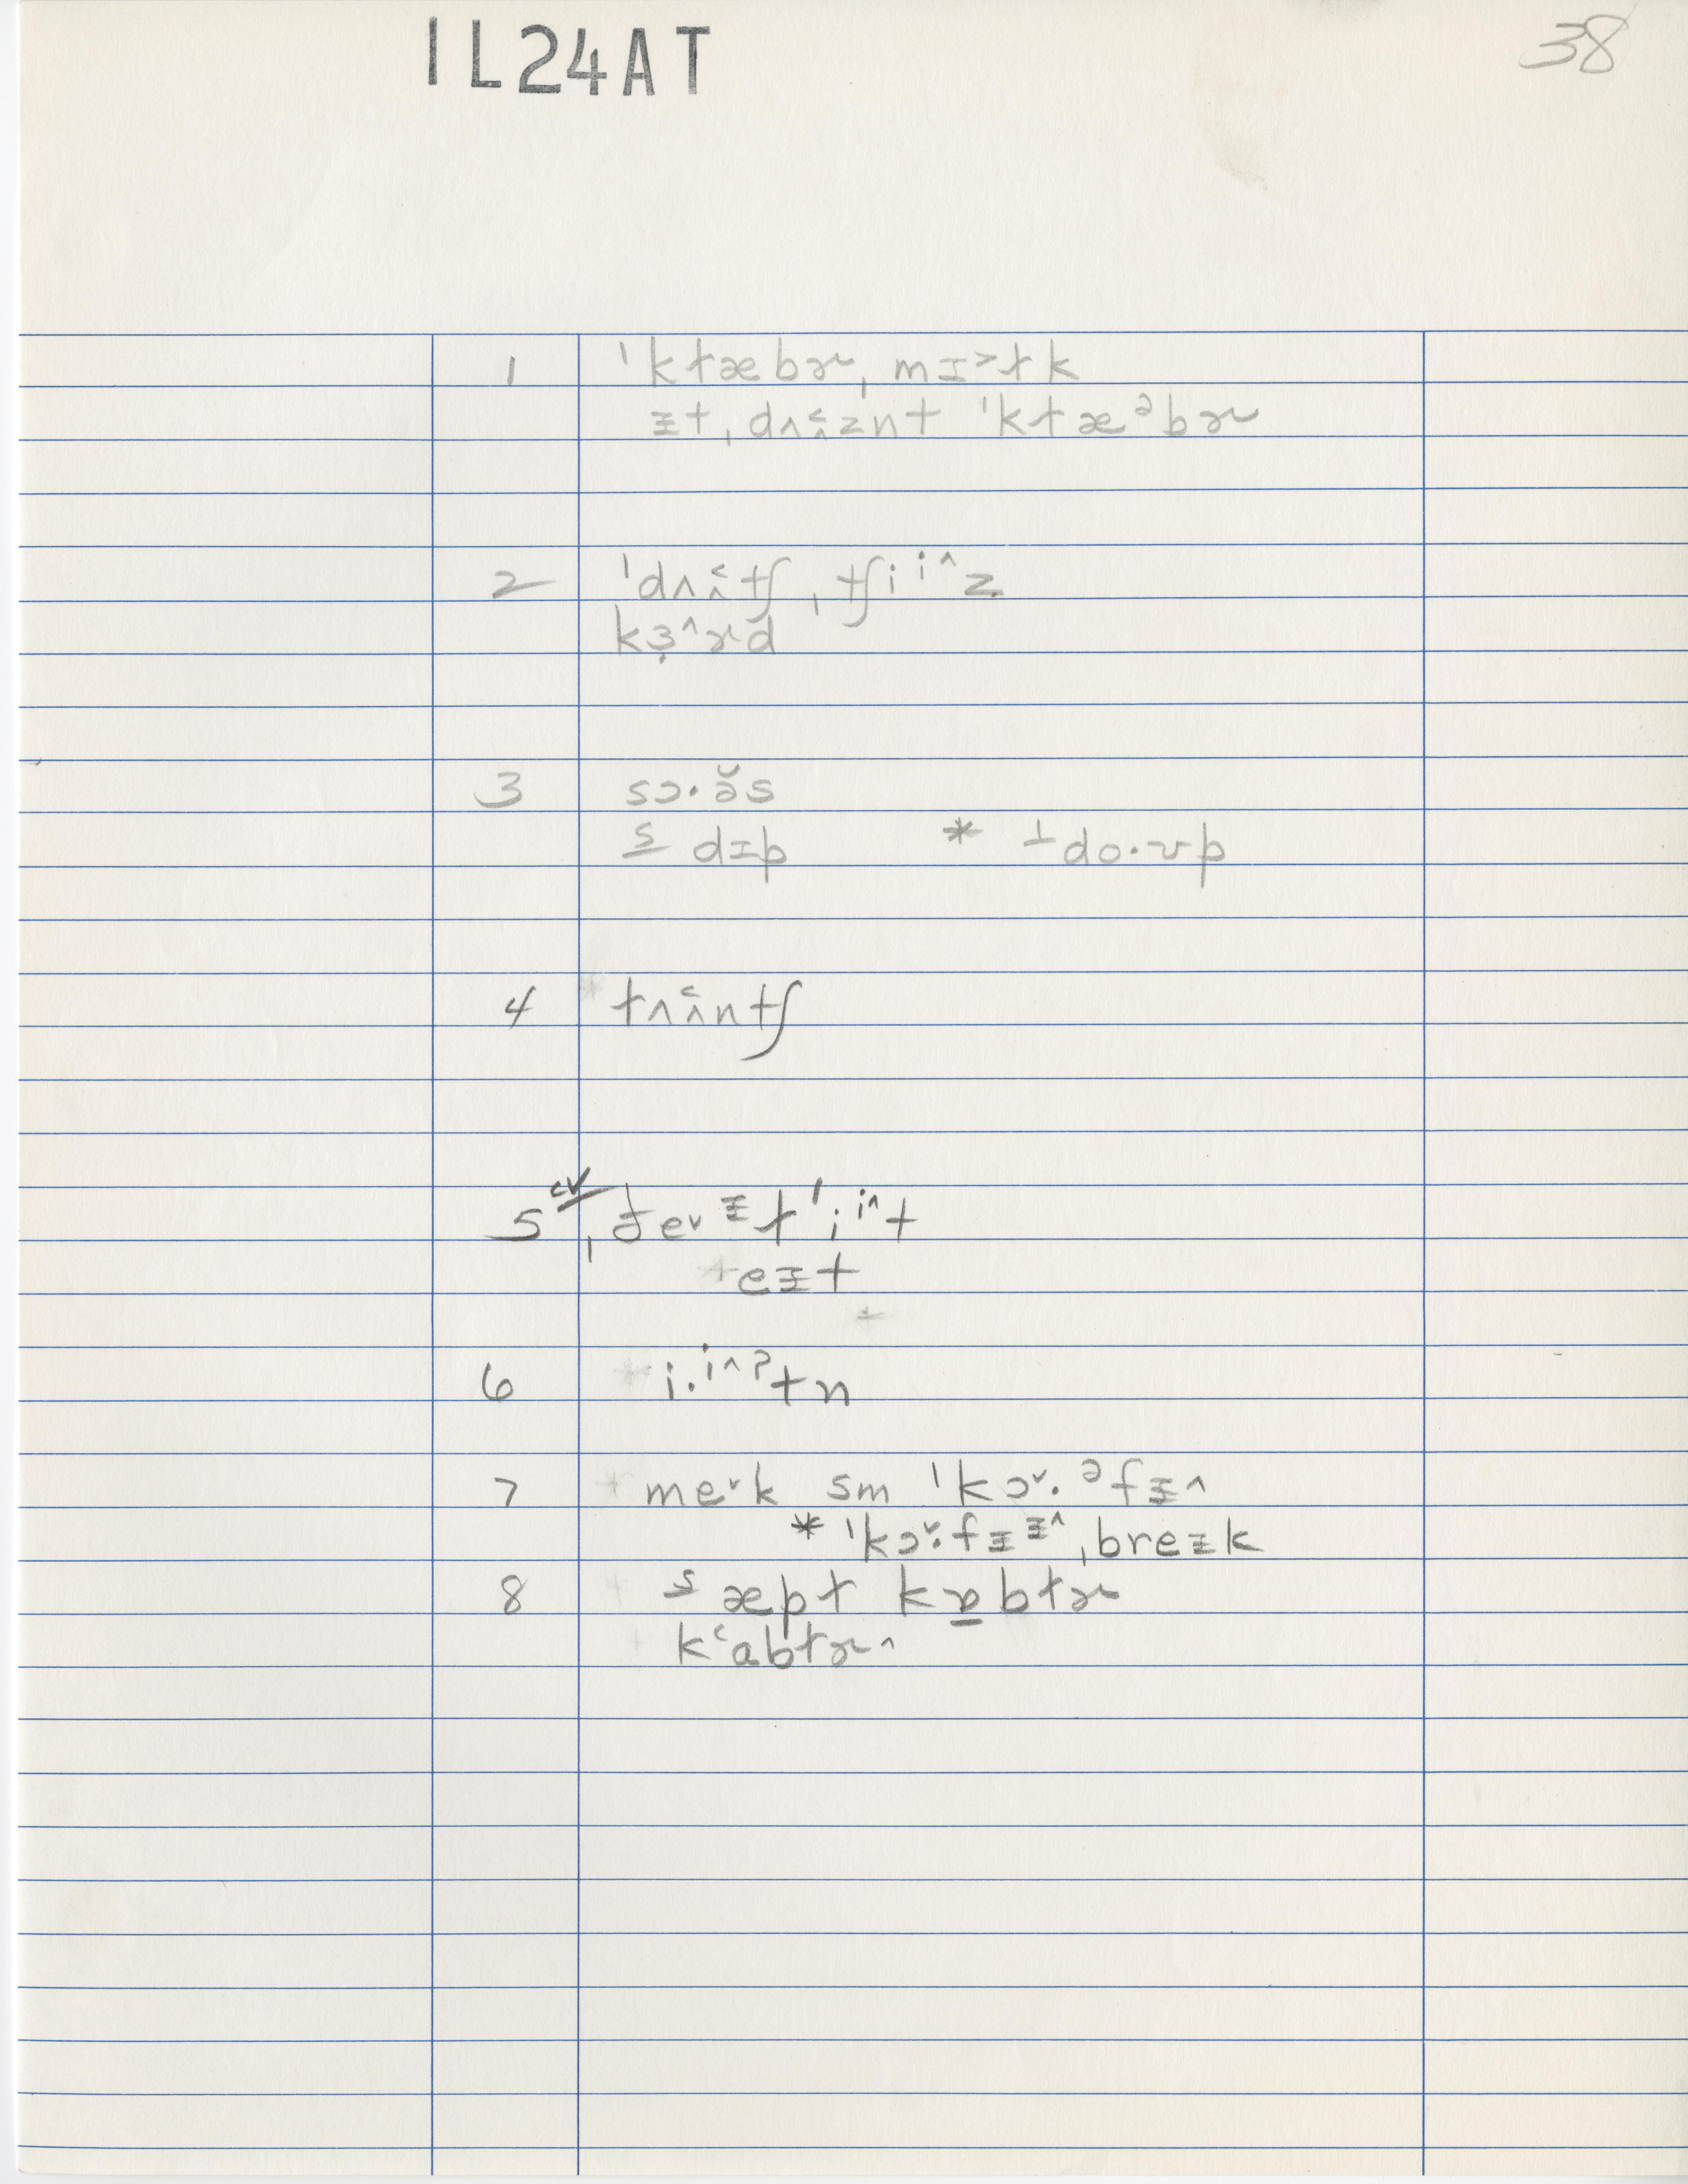 1L24AT
38
1 ˈkt̬æbɚ, mɪ˃t̬k
ɪ̵t ˌdʌʌ̂˂znt ˈkt̬æᵊbɚ
2 ˈdʌʌ̂˂tʃ ˌtʃiⁱ˄z
kɜ̣˄ɚd
3 sɔ·ə̆s
s dɪp * ⊥do·ʊp
4 t̬ʌʌ̂˂ntʃ
5 cv ˌɟe˅ᵻt̬ˈiⁱ˄t
eᵻt
6 i·ⁱ˄ˀtn
7 me˅k sm ˈkɔ˅·ᵊfᵻ˄
* ˈkɔ˅·fᵻᵻ˄ ˌbreɪk
8 s æpt̬ kɒ̱bt̬ɚ
k˂abt̬ɚ˄